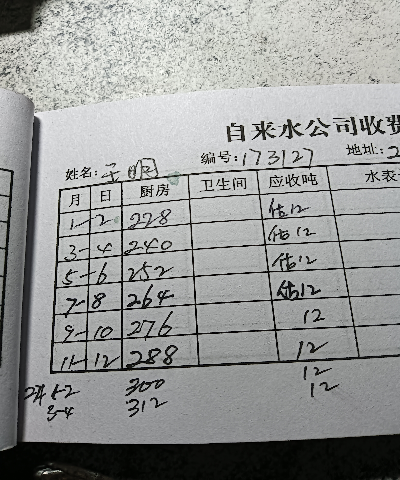 自来水公司收费
姓名: 编号: 173127 地址: 2
月 日 厨房 卫生间 应收吨 水表
1-2 228 估12
3-4 240 估12
5-6 252 估12
7-8 264 估12
9-10 276 12
11-12 288 12
1-2 300 12
3-4 312 12